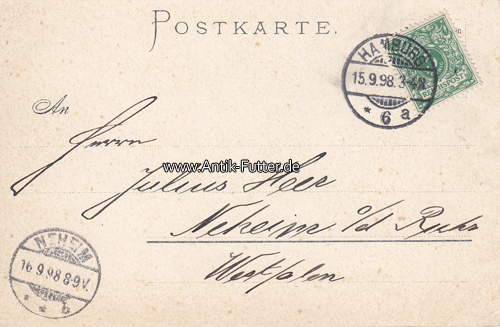 POSTKARTE.
HAMBURG
15.9.98.3-4N.
* 6 a
REICHSPOST
An
Herrn
www.Antik-Futter.de
Julius Heer
Neheim a/d Ruhr
Westfalen
NEHEIM
16.9.98.8-9V.
* * b